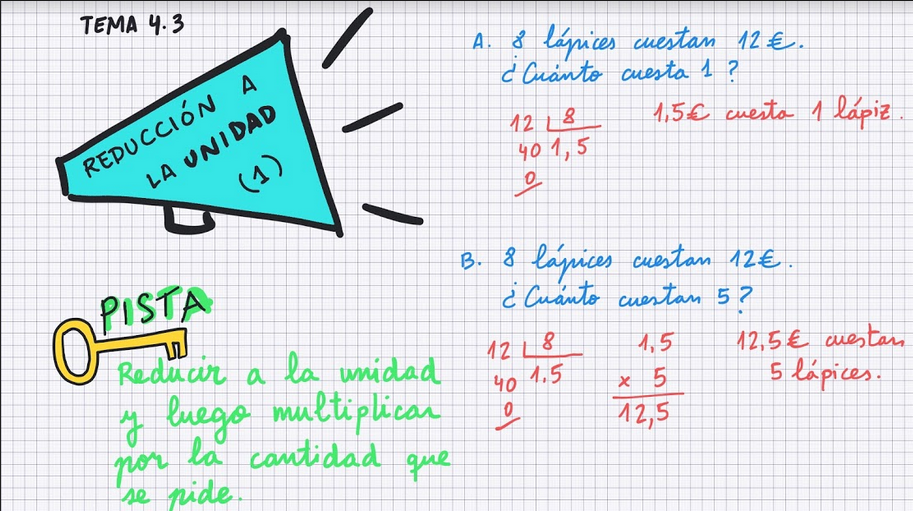 TEMA 4.3
REDUCCIÓN A
LA UNIDAD
(1)
PISTA
Reducir a la unidad
y luego multiplicar
por la cantidad que
se pide.
A. 8 lápices cuestan 12 €.
¿Cuánto cuesta 1?
12 8
40 1,5
0
1,5€ cuesta 1 lápiz.
B. 8 lápices cuestan 12€.
¿Cuánto cuestan 5?
12 8
40 1.5
0
1,5
x 5
12,5
12,5€ cuestan
5 lápices.